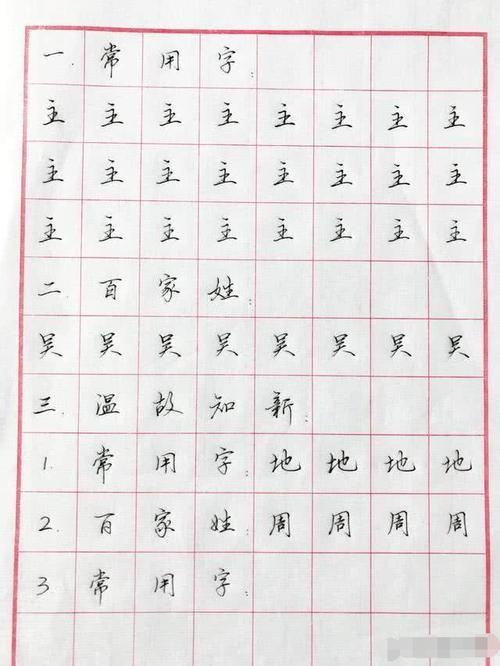 一.常用字:
主主主主主主主主
主主主主主主主主
主主主主主主主主
二.百家姓:
吴吴吴吴吴吴吴吴
三.温故知新:
1.常用字:地地地地
2.百家姓:周周周周
3常用字: